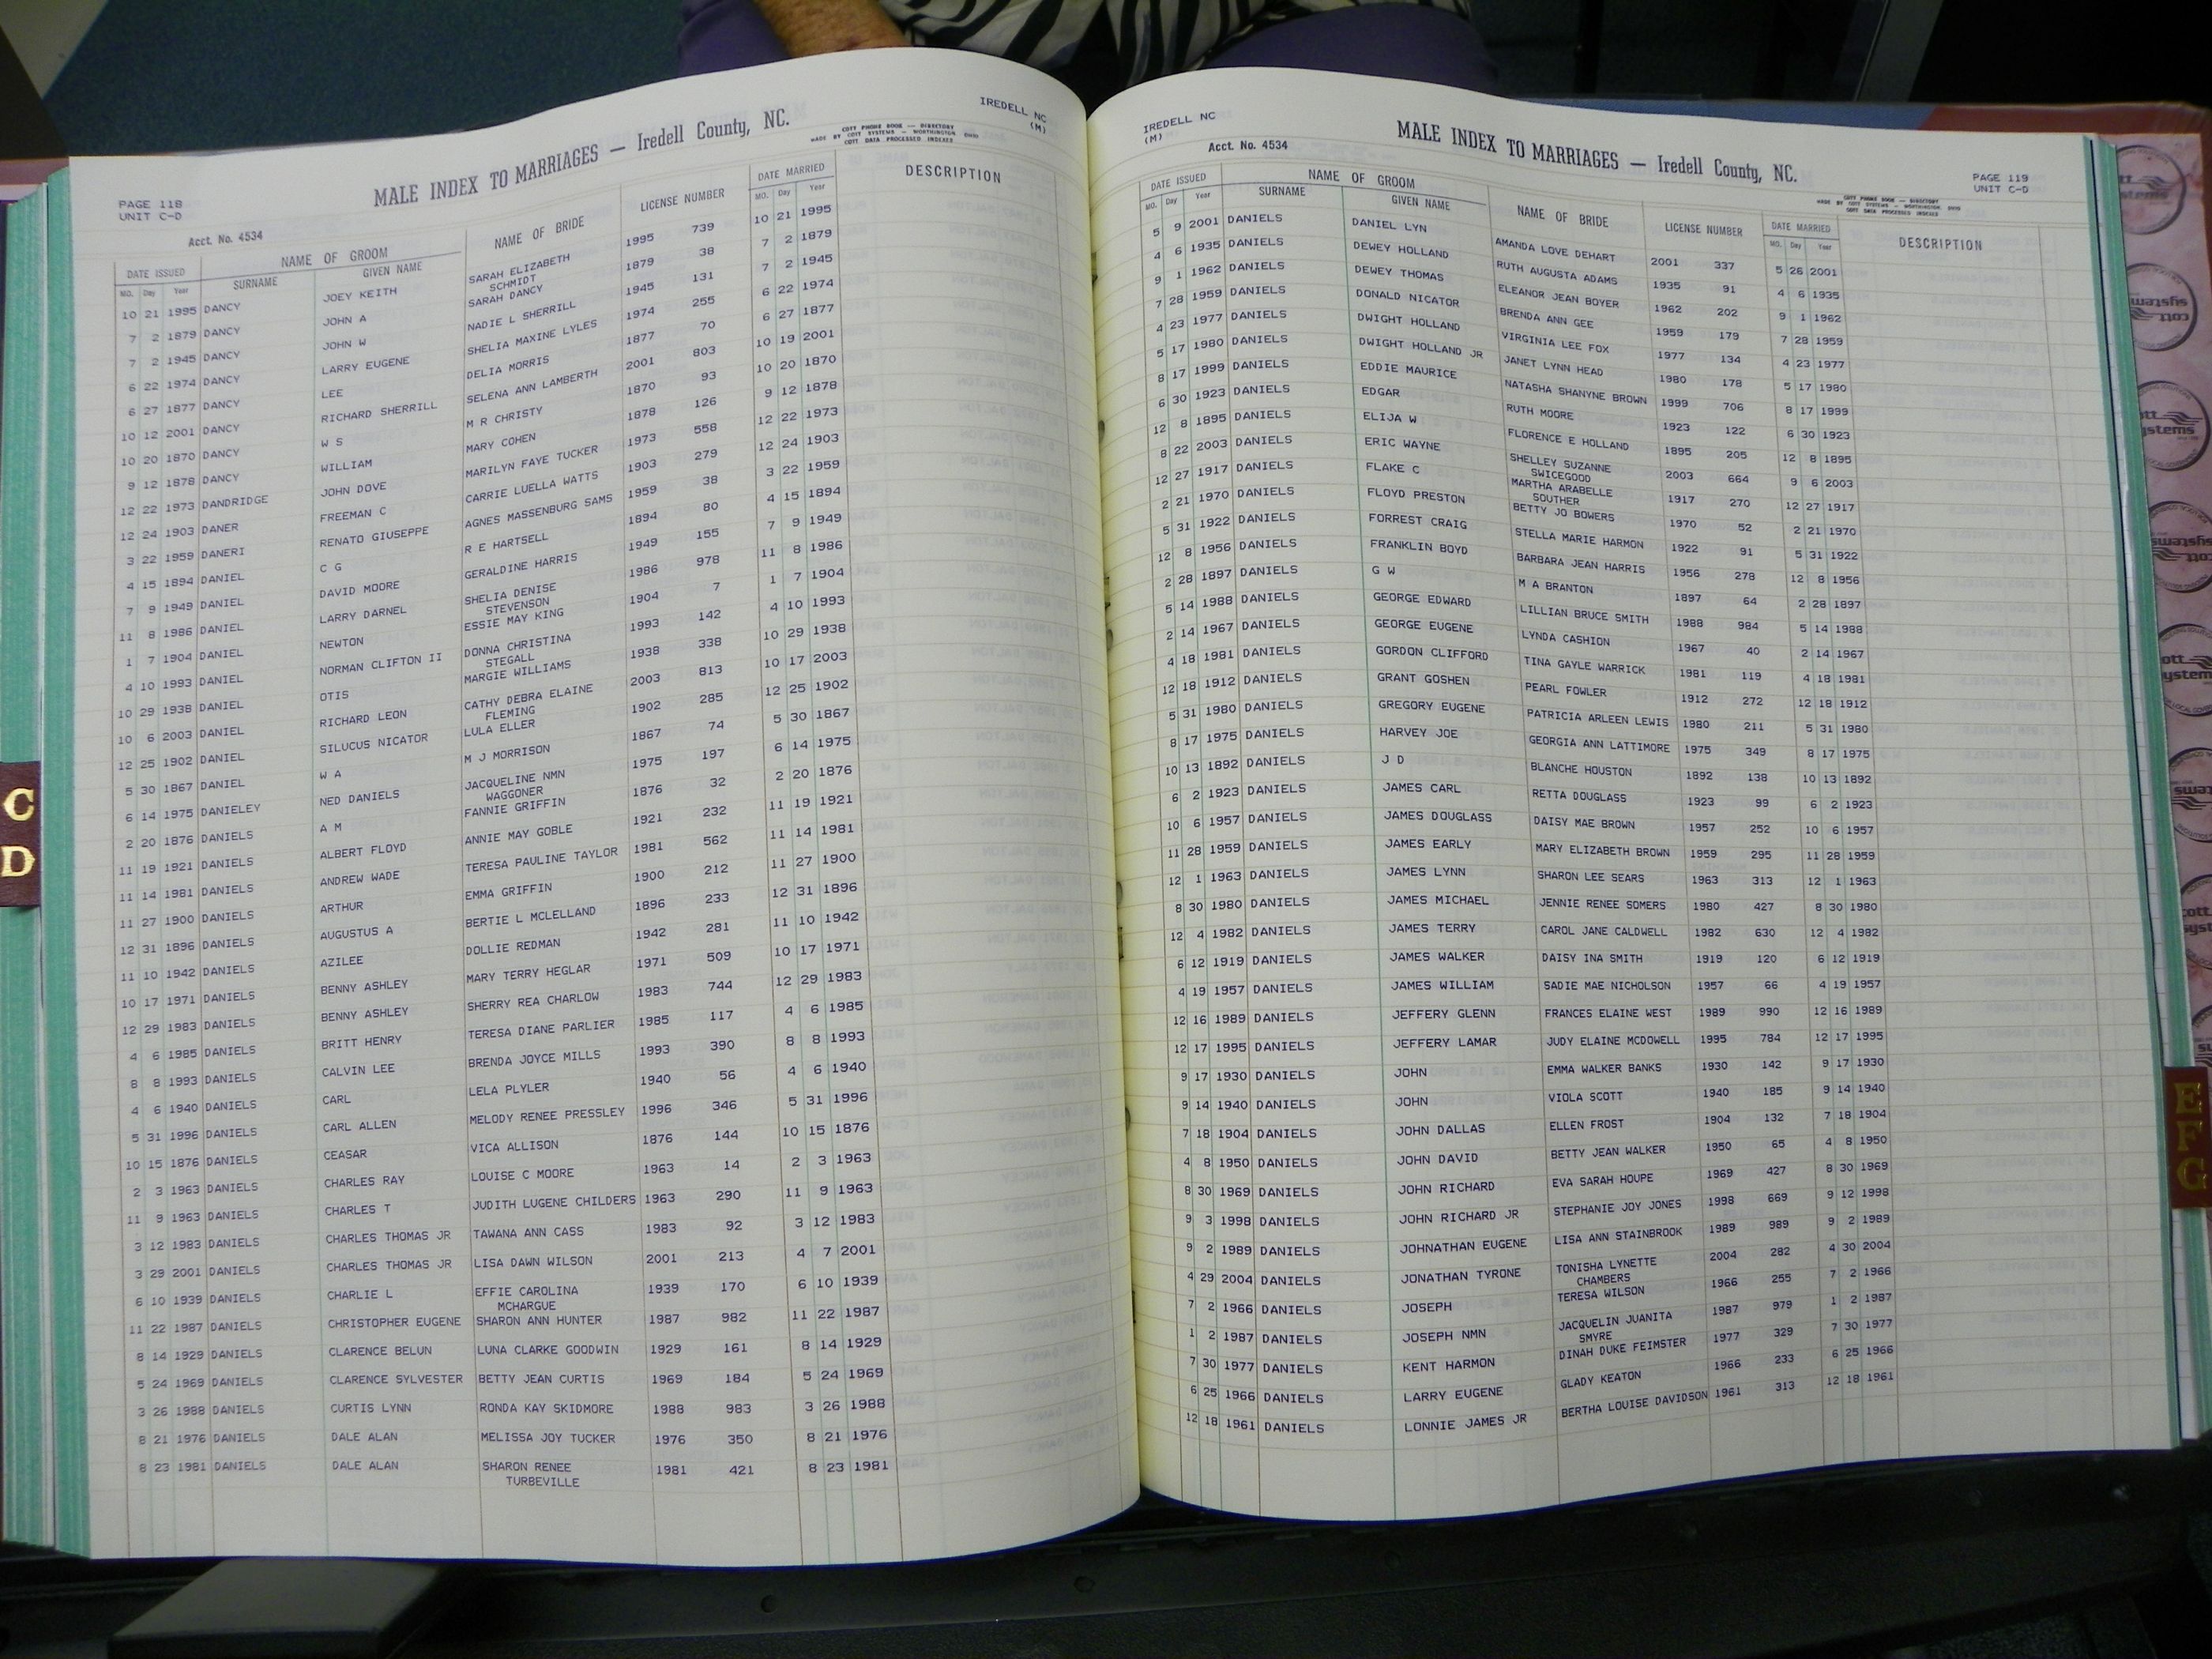 IREDELL NC
(M)
MALE INDEX TO MARRIAGES — Iredell County, NC.
COTT PHONE BOOK — DIRECTORY
MADE BY COTT SYSTEMS — WORTHINGTON, OHIO
COTT DATA PROCESSED INDEXES
PAGE 118
UNIT C-D
Acct. No. 4534
DATE ISSUED NAME OF GROOM NAME OF BRIDE LICENSE NUMBER DATE MARRIED DESCRIPTION
MO. Day Year SURNAME GIVEN NAME MO. Day Year
10 21 1995 DANCY JOEY KEITH SARAH ELIZABETH 1995 739 10 21 1995
SCHMIDT
7 2 1879 DANCY JOHN A SARAH DANCY 1879 38 7 2 1879
7 2 1945 DANCY JOHN W NADIE L SHERRILL 1945 131 7 2 1945
6 22 1974 DANCY LARRY EUGENE SHELIA MAXINE LYLES 1974 255 6 22 1974
6 27 1877 DANCY LEE DELIA MORRIS 1877 70 6 27 1877
10 12 2001 DANCY RICHARD SHERRILL SELENA ANN LAMBERTH 2001 803 10 19 2001
10 20 1870 DANCY W S M R CHRISTY 1870 93 10 20 1870
9 12 1878 DANCY WILLIAM MARY COHEN 1878 126 9 12 1878
12 22 1973 DANDRIDGE JOHN DOVE MARILYN FAYE TUCKER 1973 558 12 22 1973
12 24 1903 DANER FREEMAN C CARRIE LUELLA WATTS 1903 279 12 24 1903
3 22 1959 DANERI RENATO GIUSEPPE AGNES MASSENBURG SAMS 1959 38 3 22 1959
4 15 1894 DANIEL C G R E HARTSELL 1894 80 4 15 1894
7 9 1949 DANIEL DAVID MOORE GERALDINE HARRIS 1949 155 7 9 1949
11 8 1986 DANIEL LARRY DARNEL SHELIA DENISE 1986 978 11 8 1986
STEVENSON
1 7 1904 DANIEL NEWTON ESSIE MAY KING 1904 7 1 7 1904
4 10 1993 DANIEL NORMAN CLIFTON II DONNA CHRISTINA 1993 142 4 10 1993
STEGALL
10 29 1938 DANIEL OTIS MARGIE WILLIAMS 1938 338 10 29 1938
10 6 2003 DANIEL RICHARD LEON CATHY DEBRA ELAINE 2003 813 10 17 2003
FLEMING
12 25 1902 DANIEL SILUCUS NICATOR LULA ELLER 1902 285 12 25 1902
5 30 1867 DANIEL W A M J MORRISON 1867 74 5 30 1867
6 14 1975 DANIELEY NED DANIELS JACQUELINE NMN 1975 197 6 14 1975
WAGGONER
2 20 1876 DANIELS A M FANNIE GRIFFIN 1876 32 2 20 1876
11 19 1921 DANIELS ALBERT FLOYD ANNIE MAY GOBLE 1921 232 11 19 1921
11 14 1981 DANIELS ANDREW WADE TERESA PAULINE TAYLOR 1981 562 11 14 1981
11 27 1900 DANIELS ARTHUR EMMA GRIFFIN 1900 212 11 27 1900
12 31 1896 DANIELS AUGUSTUS A BERTIE L MCLELLAND 1896 233 12 31 1896
11 10 1942 DANIELS AZILEE DOLLIE REDMAN 1942 281 11 10 1942
10 17 1971 DANIELS BENNY ASHLEY MARY TERRY HEGLAR 1971 509 10 17 1971
12 29 1983 DANIELS BENNY ASHLEY SHERRY REA CHARLOW 1983 744 12 29 1983
4 6 1985 DANIELS BRITT HENRY TERESA DIANE PARLIER 1985 117 4 6 1985
8 8 1993 DANIELS CALVIN LEE BRENDA JOYCE MILLS 1993 390 8 8 1993
4 6 1940 DANIELS CARL LELA PLYLER 1940 56 4 6 1940
5 31 1996 DANIELS CARL ALLEN MELODY RENEE PRESSLEY 1996 346 5 31 1996
10 15 1876 DANIELS CEASAR VICA ALLISON 1876 144 10 15 1876
2 3 1963 DANIELS CHARLES RAY LOUISE C MOORE 1963 14 2 3 1963
11 9 1963 DANIELS CHARLES T JUDITH LUGENE CHILDERS 1963 290 11 9 1963
3 12 1983 DANIELS CHARLES THOMAS JR TAWANA ANN CASS 1983 92 3 12 1983
3 29 2001 DANIELS CHARLES THOMAS JR LISA DAWN WILSON 2001 213 4 7 2001
6 10 1939 DANIELS CHARLIE L EFFIE CAROLINA 1939 170 6 10 1939
MCHARGUE
11 22 1987 DANIELS CHRISTOPHER EUGENE SHARON ANN HUNTER 1987 982 11 22 1987
8 14 1929 DANIELS CLARENCE BELUN LUNA CLARKE GOODWIN 1929 161 8 14 1929
5 24 1969 DANIELS CLARENCE SYLVESTER BETTY JEAN CURTIS 1969 184 5 24 1969
3 26 1988 DANIELS CURTIS LYNN RONDA KAY SKIDMORE 1988 983 3 26 1988
8 21 1976 DANIELS DALE ALAN MELISSA JOY TUCKER 1976 350 8 21 1976
8 23 1981 DANIELS DALE ALAN SHARON RENEE 1981 421 8 23 1981
TURBEVILLE
C
D
IREDELL NC
(M)
Acct. No. 4534
MALE INDEX TO MARRIAGES — Iredell County, NC.
COTT PHONE BOOK — DIRECTORY
MADE BY COTT SYSTEMS — WORTHINGTON, OHIO
COTT DATA PROCESSED INDEXES
PAGE 119
UNIT C-D
DATE ISSUED NAME OF GROOM NAME OF BRIDE LICENSE NUMBER DATE MARRIED DESCRIPTION
MO. Day Year SURNAME GIVEN NAME MO. Day Year
5 9 2001 DANIELS DANIEL LYN AMANDA LOVE DEHART 2001 337 5 26 2001
4 6 1935 DANIELS DEWEY HOLLAND RUTH AUGUSTA ADAMS 1935 91 4 6 1935
9 1 1962 DANIELS DEWEY THOMAS ELEANOR JEAN BOYER 1962 202 9 1 1962
7 28 1959 DANIELS DONALD NICATOR BRENDA ANN GEE 1959 179 7 28 1959
4 23 1977 DANIELS DWIGHT HOLLAND VIRGINIA LEE FOX 1977 134 4 23 1977
5 17 1980 DANIELS DWIGHT HOLLAND JR JANET LYNN HEAD 1980 178 5 17 1980
8 17 1999 DANIELS EDDIE MAURICE NATASHA SHANYNE BROWN 1999 706 8 17 1999
6 30 1923 DANIELS EDGAR RUTH MOORE 1923 122 6 30 1923
12 8 1895 DANIELS ELIJA W FLORENCE E HOLLAND 1895 205 12 8 1895
8 22 2003 DANIELS ERIC WAYNE SHELLEY SUZANNE 2003 664 9 6 2003
SWICEGOOD
12 27 1917 DANIELS FLAKE C MARTHA ARABELLE 1917 270 12 27 1917
SOUTHER
2 21 1970 DANIELS FLOYD PRESTON BETTY JO BOWERS 1970 52 2 21 1970
5 31 1922 DANIELS FORREST CRAIG STELLA MARIE HARMON 1922 91 5 31 1922
12 8 1956 DANIELS FRANKLIN BOYD BARBARA JEAN HARRIS 1956 278 12 8 1956
2 28 1897 DANIELS G W M A BRANTON 1897 64 2 28 1897
5 14 1988 DANIELS GEORGE EDWARD LILLIAN BRUCE SMITH 1988 984 5 14 1988
2 14 1967 DANIELS GEORGE EUGENE LYNDA CASHION 1967 40 2 14 1967
4 18 1981 DANIELS GORDON CLIFFORD TINA GAYLE WARRICK 1981 119 4 18 1981
12 18 1912 DANIELS GRANT GOSHEN PEARL FOWLER 1912 272 12 18 1912
5 31 1980 DANIELS GREGORY EUGENE PATRICIA ARLEEN LEWIS 1980 211 5 31 1980
8 17 1975 DANIELS HARVEY JOE GEORGIA ANN LATTIMORE 1975 349 8 17 1975
10 13 1892 DANIELS J D BLANCHE HOUSTON 1892 138 10 13 1892
6 2 1923 DANIELS JAMES CARL RETTA DOUGLASS 1923 99 6 2 1923
10 6 1957 DANIELS JAMES DOUGLASS DAISY MAE BROWN 1957 252 10 6 1957
11 28 1959 DANIELS JAMES EARLY MARY ELIZABETH BROWN 1959 295 11 28 1959
12 1 1963 DANIELS JAMES LYNN SHARON LEE SEARS 1963 313 12 1 1963
8 30 1980 DANIELS JAMES MICHAEL JENNIE RENEE SOMERS 1980 427 8 30 1980
12 4 1982 DANIELS JAMES TERRY CAROL JANE CALDWELL 1982 630 12 4 1982
6 12 1919 DANIELS JAMES WALKER DAISY INA SMITH 1919 120 6 12 1919
4 19 1957 DANIELS JAMES WILLIAM SADIE MAE NICHOLSON 1957 66 4 19 1957
12 16 1989 DANIELS JEFFERY GLENN FRANCES ELAINE WEST 1989 990 12 16 1989
12 17 1995 DANIELS JEFFERY LAMAR JUDY ELAINE MCDOWELL 1995 784 12 17 1995
9 17 1930 DANIELS JOHN EMMA WALKER BANKS 1930 142 9 17 1930
9 14 1940 DANIELS JOHN VIOLA SCOTT 1940 185 9 14 1940
7 18 1904 DANIELS JOHN DALLAS ELLEN FROST 1904 132 7 18 1904
4 8 1950 DANIELS JOHN DAVID BETTY JEAN WALKER 1950 65 4 8 1950
8 30 1969 DANIELS JOHN RICHARD EVA SARAH HOUPE 1969 427 8 30 1969
9 3 1998 DANIELS JOHN RICHARD JR STEPHANIE JOY JONES 1998 669 9 12 1998
9 2 1989 DANIELS JOHNATHAN EUGENE LISA ANN STAINBROOK 1989 989 9 2 1989
4 29 2004 DANIELS JONATHAN TYRONE TONISHA LYNETTE 2004 282 4 30 2004
CHAMBERS
7 2 1966 DANIELS JOSEPH TERESA WILSON 1966 255 7 2 1966
1 2 1987 DANIELS JOSEPH NMN JACQUELIN JUANITA 1987 979 1 2 1987
SMYRE
7 30 1977 DANIELS KENT HARMON DINAH DUKE FEIMSTER 1977 329 7 30 1977
6 25 1966 DANIELS LARRY EUGENE GLADY KEATON 1966 233 6 25 1966
12 18 1961 DANIELS LONNIE JAMES JR BERTHA LOUISE DAVIDSON 1961 313 12 18 1961
E
F
G